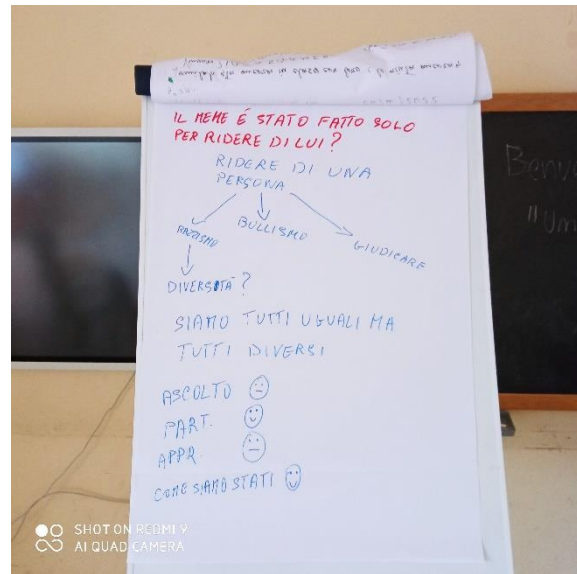 IL MEME É STATO FATTO SOLO
PER RIDERE DI LUI?
RIDERE DI UNA
PERSONA
RAZZISMO
BULLISMO
GIUDICARE
DIVERSITÀ?
SIAMO TUTTI UGUALI MA
TUTTI DIVERSI
ASCOLTO
PART.
APPR.
COME SIAMO STATI
SHOT ON REDMI 9
AI QUAD CAMERA